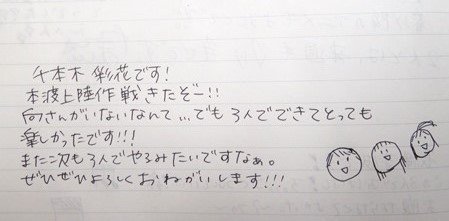 千本木 彩花です!
本渡上陸作戦きたぞー!!
向さんがいないなんて…でも3人でできてとっても
楽しかったです!!!
また次も3人でやるみたいですなぁ。
ぜひぜひよろしくおねがいします!!!